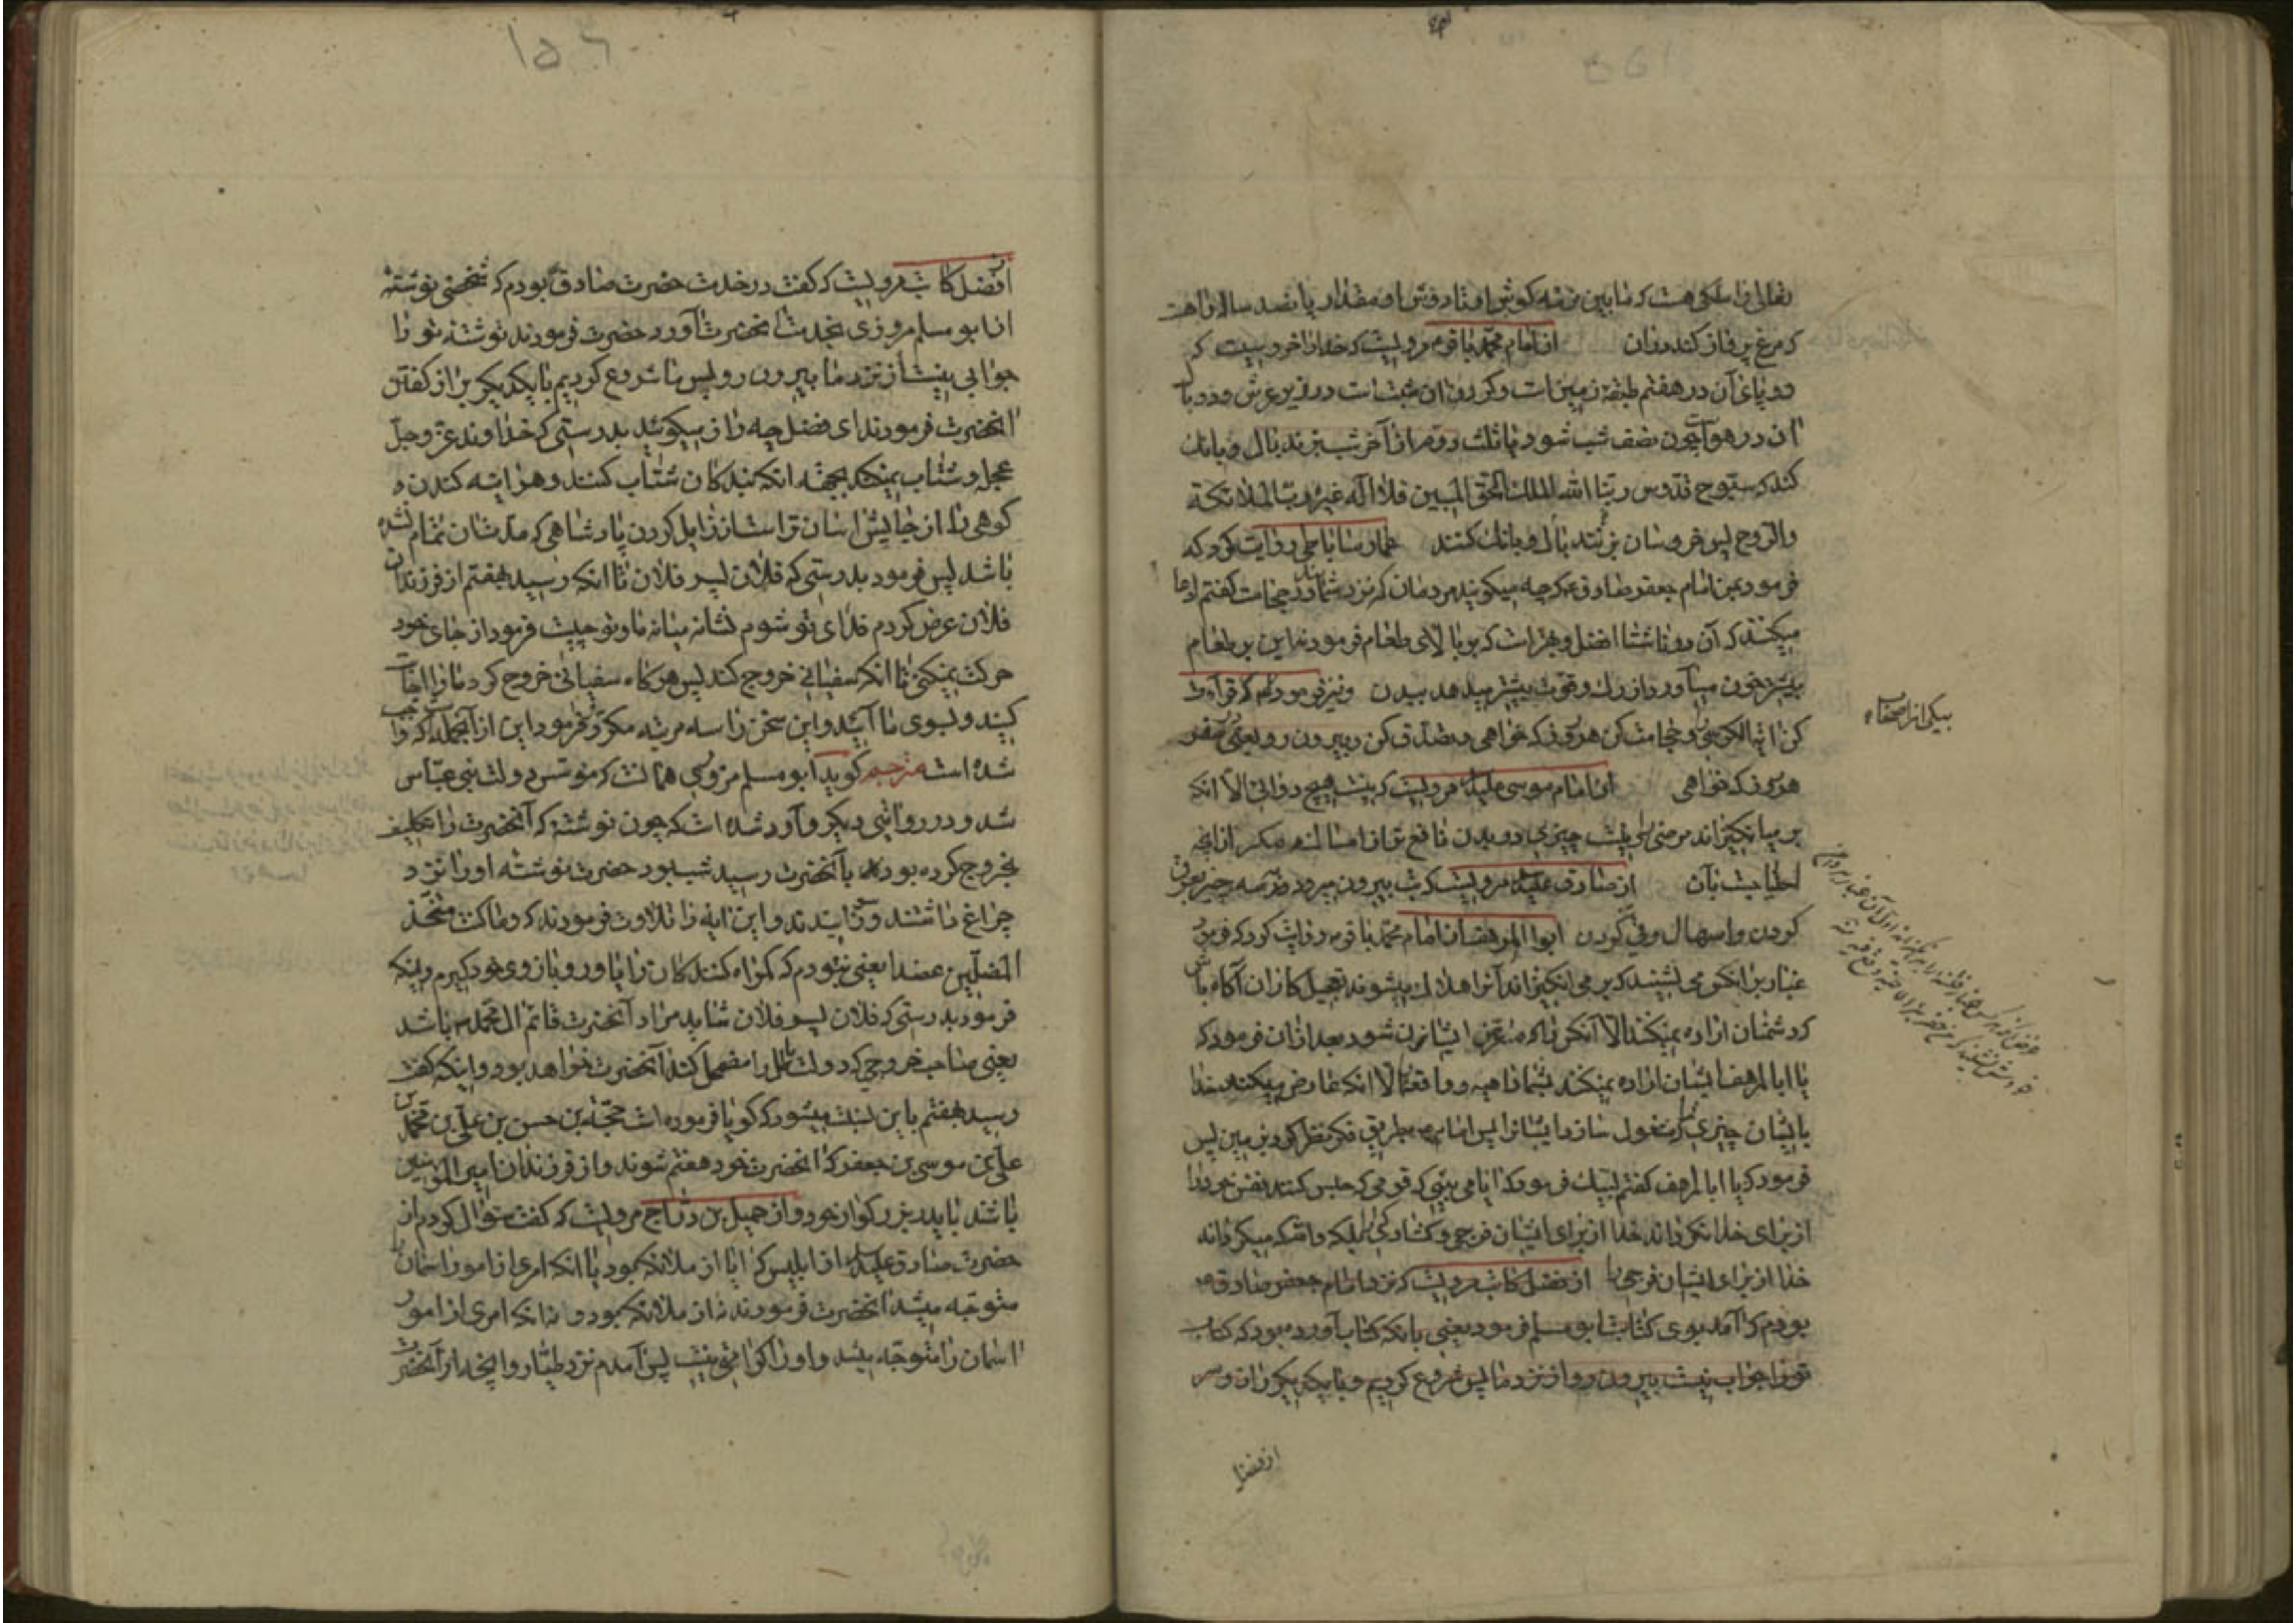 تعالی را ملکی هست که مابین نرمه گوش او تا دوش او مقدار پانصد سال راهست
که مرغ پرواز کند در آن از امام محمد باقر ع مرویست که خدا را خروسیست که
دو پای آن در هفتم طبقه زمین است و گردن آن مثبت است در زیر عرش و دو بال
آن در هواست چون نصف شب شود یا ثلث دوم از آخر شب بزند بال و بانک
کند که سبوح قدوس ربنا الله الملک الحق المبین فلا اله غیره رب الملائکة
والروح پس خروسان بزنند بال و بانک کنند عمار ساباطی روایت کرد که
فرمود بمن امام جعفر صادق ع که چه میگویند مردمان که نزد شمااند در حجامت گفتم ادعا
میکنند که آن در ناشتا افضل و بهتر است که بر بالای طعام فرمودند این بر طعام
بیشتر خون میآورد از رگ و قوت بیشتر میدهد ببدن و نیز فرمودند که قرائت
کن آیة الکرسی را و حجامت کن هر روز که خواهی و تصدق کن و بیرون رو یعنی سفر
هر روز که خواهی از امام موسی علیه مرویست که نیست هیچ دوائی الا آنکه
بر میانگیزاند مرضی را و نیست چیزی در بدن نافع تر از امساک مگر از آنچه
احتیاجست بآن از صادق علیه مرویست که تب بیرون میرود در سه چیز بعرق
کردن و اسهال و قی کردن ابوالمرهف از امام محمد باقر ع روایت کرد که فرمود
غبار بر آنکس می نشیند که بر می انگیزاند آنرا هلاک میشوند تعجیل کاران آگاه باش
که دشمنان اراده نمیکنند الا آنکس را که متعرض ایشان شود بعد از آن فرمود که
یا ابا المرهف ایشان اراده نمیکنند بشما داهیه و واقعه الا آنکه عارض میکند خدا
بایشان چیزی که مشغول سازد ایشانرا پس امام ع بطریق فکر نظر کرد بزمین پس
فرمود که یا ابا المرهف گفتم لبیک فرمود که آیا می بینی که قومی که حبس کنند نفس خود را
از برای خدا نگرداند خدا از برای ایشان فرجی و گشادگی بلکه والله که میگرداند
خدا از برای ایشان فرجی را از فضل کاتب مرویست که نزد امام جعفر صادق ع
بودم که آمد بوی کتابت ابو مسلم فرمود یعنی بآنکه کتاب آورده بود که کتاب
تو را جواب نیست بیرون رو از نزد ما پس شروع کردیم و با یکدیگر راز و سر
بیکی از اصحاب
از فضل
از فضل کاتب مرویست که گفت در خدمت حضرت صادق ع بودم که شخصی نوشته
از ابو مسلم مروزی بخدمت آنحضرت آورد حضرت فرمودند نوشته تو را
جوابی نیست از نزد ما بیرون رو پس ما شروع کردیم با یکدیگر براز گفتن
آنحضرت فرمودند ای فضل چه راز میگوئید بدرستی که خداوند عز و جل
عجله و شتاب نمیکند بجهة آنکه بندگان شتاب کنند و هر آینه کندن
کوهی را از جایش آسان تر است از زایل کردن پادشاهی که مدتشان تمام نشده
باشد پس فرمود بدرستی که فلان پسر فلان تا آنکه رسید بهفتم از فرزندان
فلان عرض کردم فدای تو شوم نشانه میانه ما و تو چیست فرمود از جای خود
حرکت نمیکنی تا آنکه سفیانی خروج کند پس هرگاه سفیانی خروج کرد ما را اجابت
کنید و بسوی ما آئید و این سخن را سه مرتبه مکرر فرمود این از آنجمله است که واجب
شده است مترجم گوید ابو مسلم مروزی همانست که مؤسس دولت بنی عباس
شد و در روایتی دیگر وارد شده است که چون نوشته که آنحضرت را تکلیف
بخروج کرده بود بآنحضرت رسید شب بود حضرت نوشته او را نزد
چراغ داشتند و سوزانیدند و این آیه را تلاوت فرمودند که وما کنت متخذ
المضلین عضدا یعنی نبودم که گمراه کنندکان را یاور و بازوی خود گیرم و اینکه
فرمود بدرستی که فلان پسر فلان شاید مراد آنحضرت قائم آل محمد ص باشد
یعنی صاحب خروجی که دولت باطل را مضمحل کند آنحضرت خواهد بود و اینکه گفت
رسید بهفتم باین نسبت میشود که گویا فرموده است حجة بن حسن بن علی بن محمد بن
علی بن موسی بن جعفر که آنحضرت خود هفتم شوند و از فرزندان امیر المؤمنین
باشد یا پدر بزرگوار خود و از جمیل بن دراج مرویست که گفت سؤال کردم از
حضرت صادق علیه السلام از ابلیس که آیا از ملائکه بود یا آنکه امری از امور آسمان را
متوجه میشد آنحضرت فرمودند نه از ملائکه بود و نه آنکه امری از امور
آسمان را متوجه میشد و او را کرامتی نیست پس آمدم نزد طیار و اخبار آنحضرت